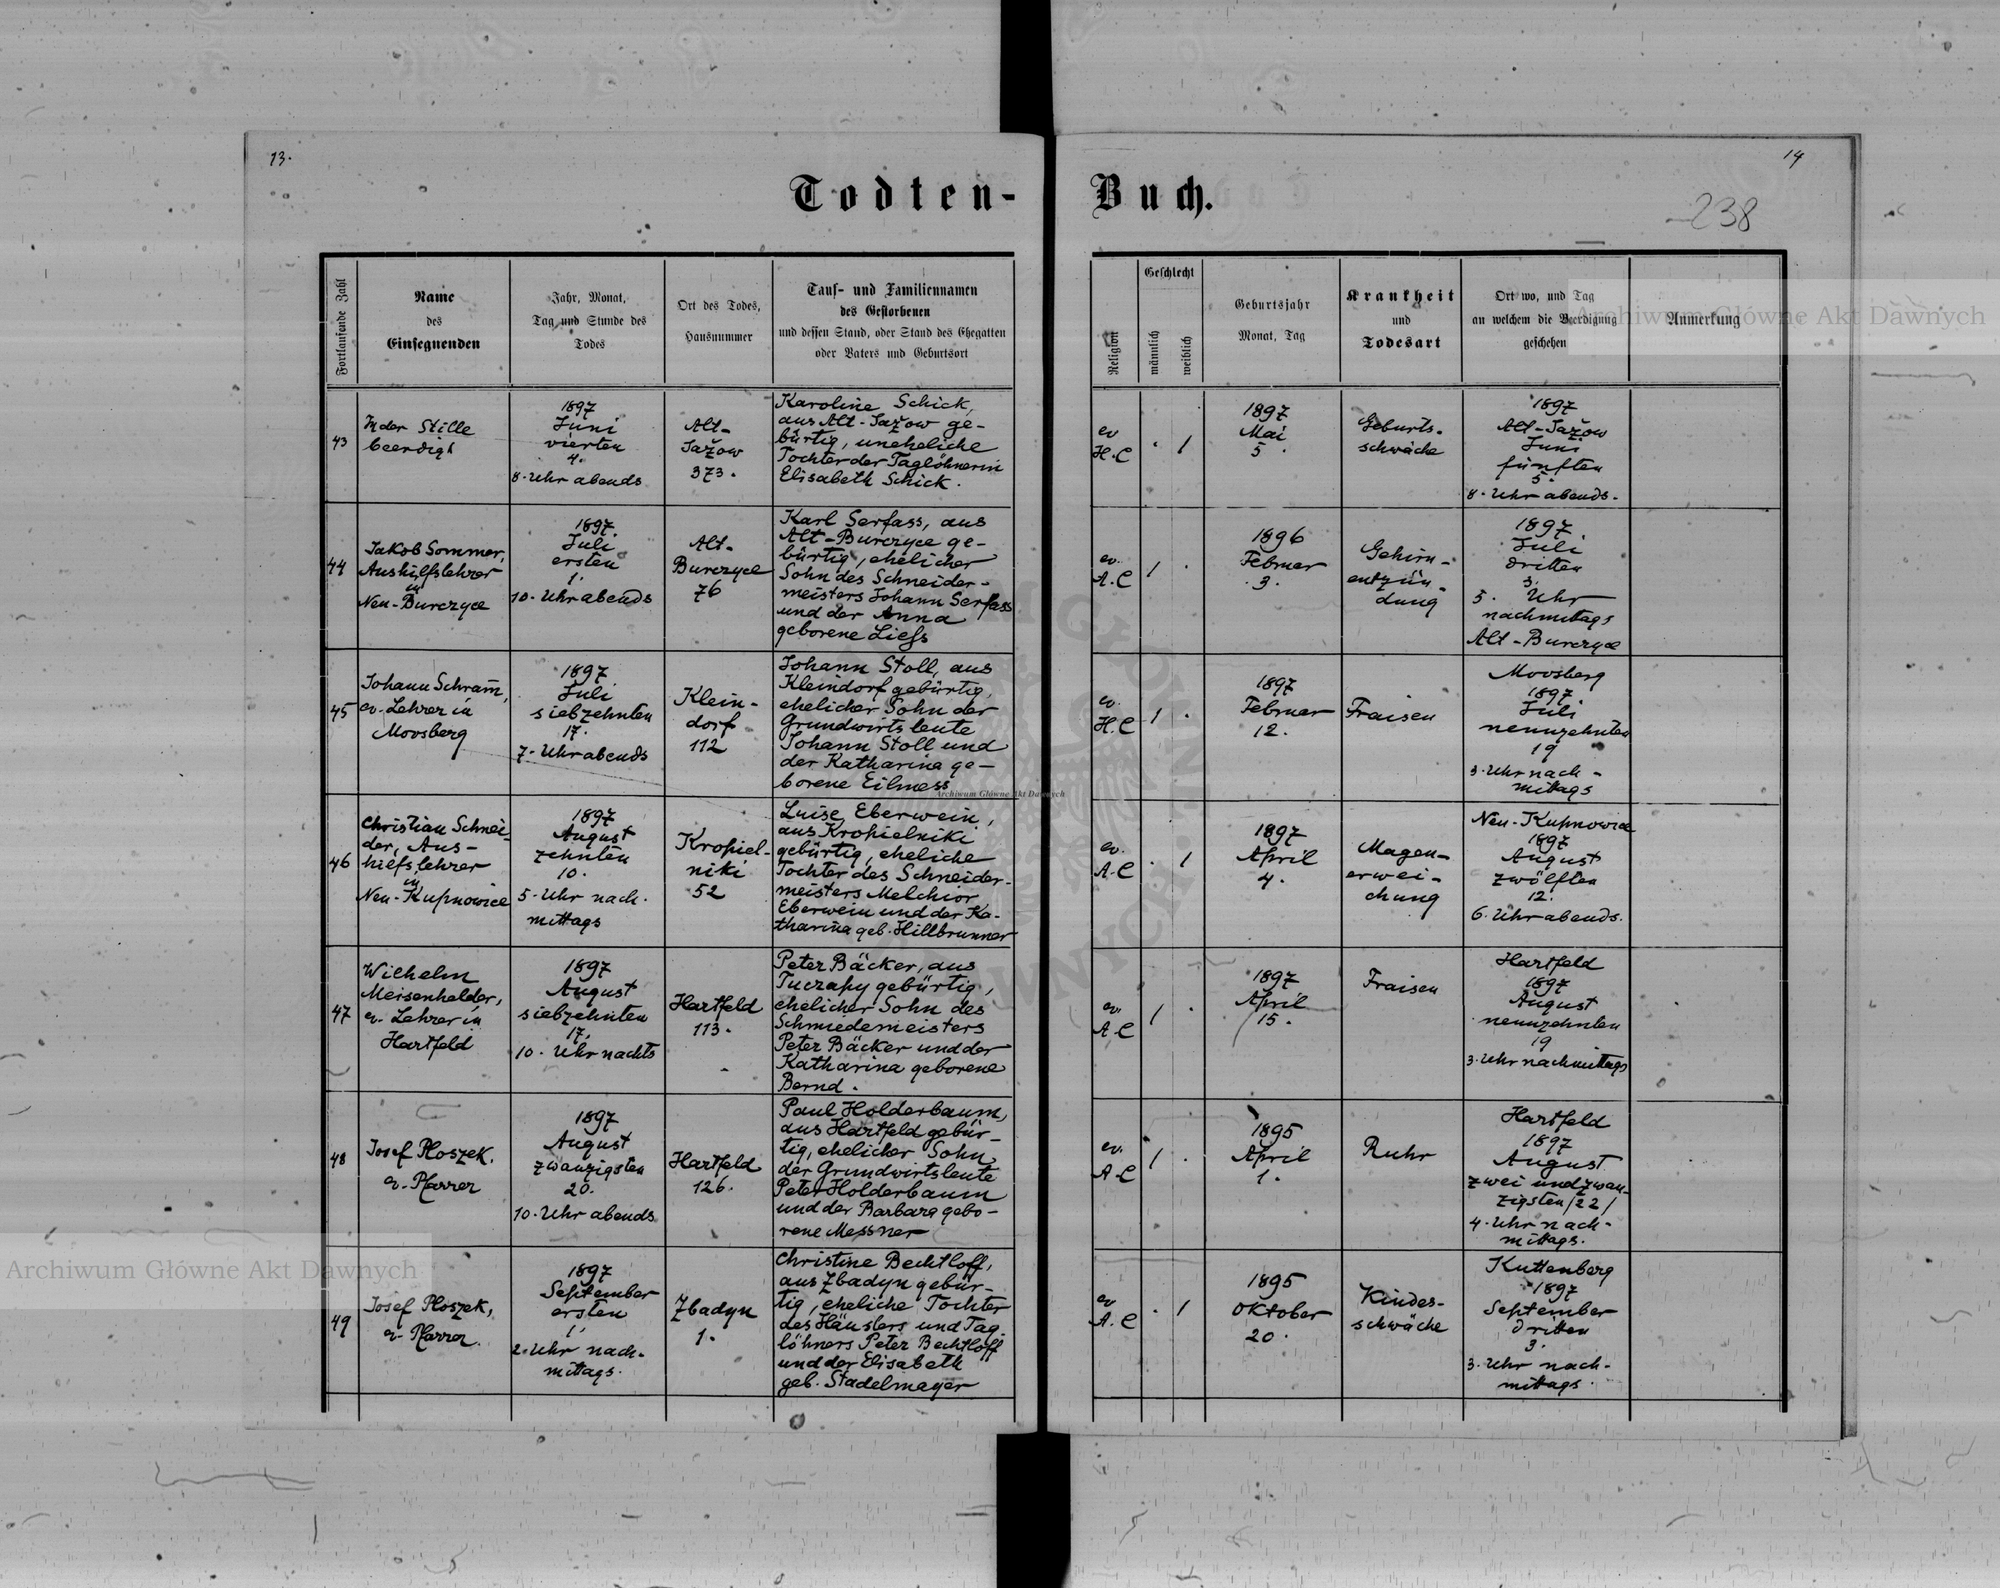 13.
14
238
Todten-
Buch.
Fortlaufende Zahl
Name
des
Einsegnenden
Jahr, Monat,
Tag und Stunde des
Todes
Ort des Todes,
Hausnummer
Tauf- und Familiennamen
des Gestorbenen
und dessen Stand, oder Stand des Ehegatten
oder Vaters und Geburtsort
Religion
Geschlecht
männlich
weiblich
Geburtsjahr
Monat, Tag
Krankheit
und
Todesart
Ort wo, und Tag
an welchem die Beerdigung
geschehen
Anmerkung
43
In der Stille
beerdigt
1897
Juni
vierten
4.
8. Uhr abends
Alt-
Jažow
373.
Karoline Schick,
aus Alt-Jažow ge-
bürtig, uneheliche
Tochter der Taglöhnerin
Elisabeth Schick.
ev
H.C
. 1
1897
Mai
5.
Geburts-
schwäche
1897
Alt-Jažow
Juni
fünften
5.
8. Uhr abends.
44
Jakob Sommer,
Aushilfslehrer
in
Neu-Burczyce
1897.
Juli
ersten
1.
10. Uhr abends
Alt-
Burczyce
76
Karl Serfass, aus
Alt-Burczyce ge-
bürtig, ehelicher
Sohn des Schneider-
meisters Johann Serfass
und der Anna
geborene Liess
ev.
A.C
1 .
1896
Februar
3.
Gehirn-
entzün-
dung
1897.
Juli
dritten
3.
5. Uhr
nachmittags
Alt-Burczyce
45
Johann Schram̄,
ev. Lehrer in
Moosberg
1897
Juli
siebzehnten
17.
7. Uhr abends
Klein-
dorf
112
Johann Stoll, aus
Kleindorf gebürtig,
ehelicher Sohn der
Grundwirtsleute
Johann Stoll und
der Katharina ge-
borene Eilmess
ev.
H.C
1 .
1897
Februar
12.
Fraisen
Moosberg
1897
Juli
neunzehnten
19
3. Uhr nach-
mittags
46
Christian Schnei-
der, Aus-
hiefslehrer
in
Neu-Kupnowice
1897
August
zehnten
10.
5. Uhr nach.
mittags
Kropiel-
niki
52
Luise Eberwein,
aus Kropielniki
gebürtig, eheliche
Tochter des Schneider-
meisters Melchior
Eberwein und der Ka-
tharina geb. Hillbrunner
ev.
A.C
. 1
1897
April
4.
Magen-
erwei-
chung
Neu-Kupnowice
1897
August
zwölften
12.
6. Uhr abends.
47
Wilhelm
Meisenhelder,
ev. Lehrer in
Hartfeld
1897
August
siebzehnten
17.
10. Uhr nachts
Hartfeld
113.
Peter Bäcker, aus
Tuczapy gebürtig,
ehelicher Sohn des
Schmiedemeisters
Peter Bäcker und der
Katharina geborene
Bernd.
ev.
A.C
1 .
1897
April
15.
Fraisen
Hartfeld
1897
August
neunzehnten
19
3. Uhr nachmittags
48
Josef Ploszek.
ev. Pfarrer
1897
August
zwanzigsten
20.
10. Uhr abends
Hartfeld
126.
Paul Holderbaum,
aus Hartfeld gebür-
tig, ehelicher Sohn
der Grundwirtsleute
Peter Holderbaum
und der Barbara gebo-
rene Messner
ev.
A.C
1 .
1895
April
1.
Ruhr
Hartfeld
1897
August
zwei und zwan-
zigsten /22/
4. Uhr nach-
mittags.
49
Josef Ploszek,
ev. Pfarrer.
1897
September
ersten
1.
2. Uhr nach-
mittags.
Zbadyn
1.
Christine Bechtloff,
aus Zbadyn gebür-
tig, eheliche Tochter
des Häuslers und Tag
löhners Peter Bechtloff
und der Elisabeth
geb. Stadelmayer
ev
A.C
. 1
1895
Oktober
20.
Kindes-
schwäche
Kuttenberg
1897
September
dritten
3.
3. Uhr nach-
mittags.
Archiwum Główne Akt Dawnych
Archiwum Główne Akt Dawnych
Archiwum Główne Akt Dawnych